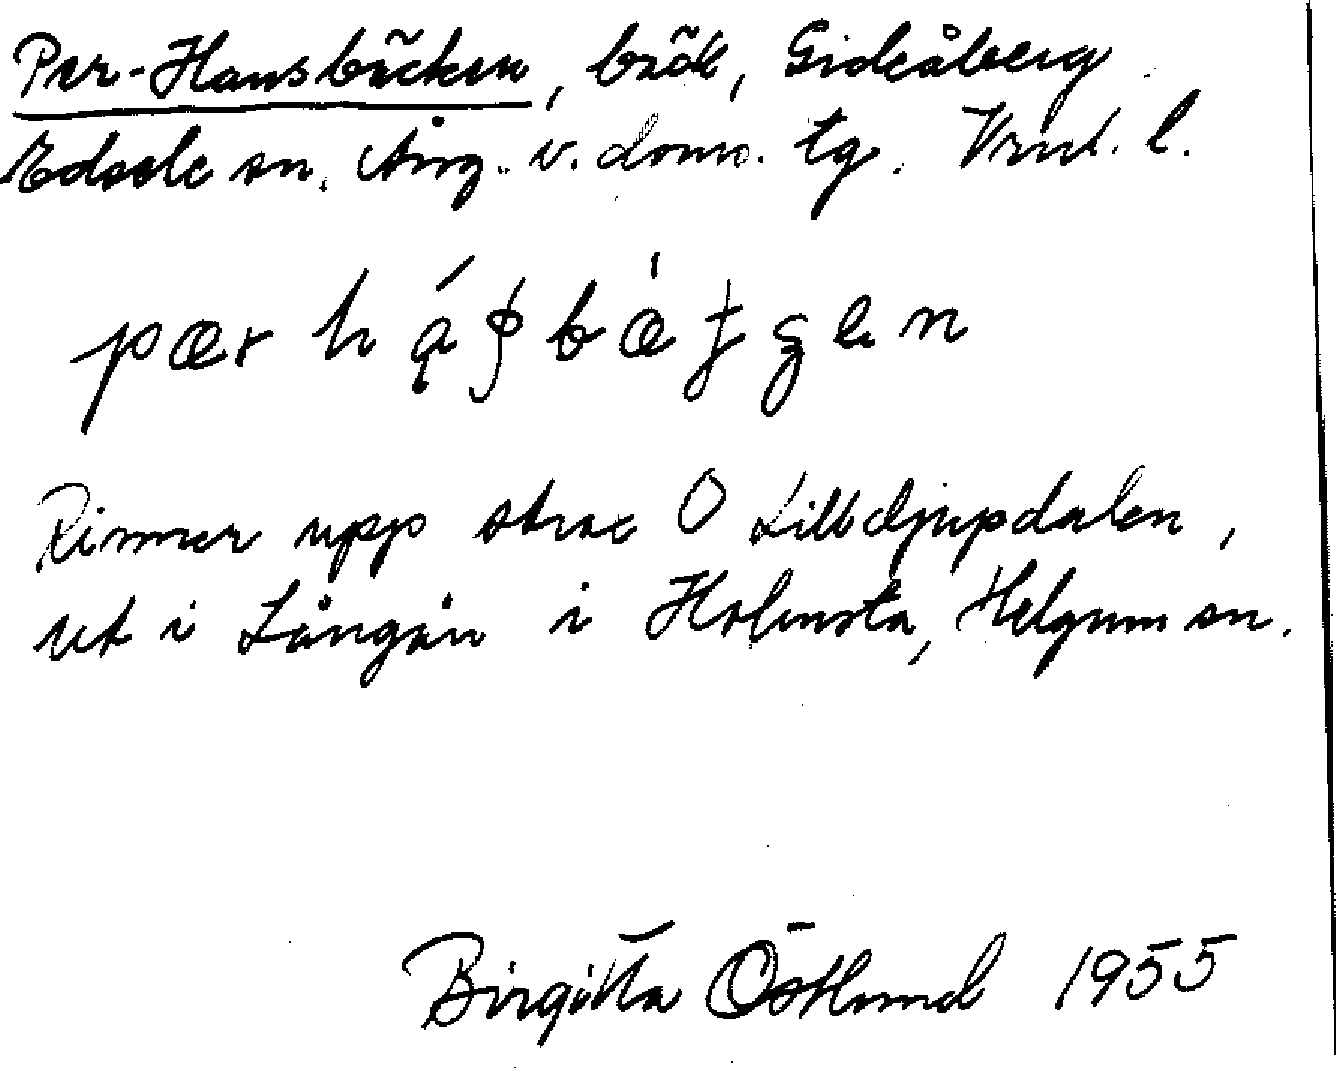 Per-Hansbäcken, bäck, Gideåberg
Edsele sn. Ång. v. doms. tg.
pær
Rinner upp strax O Lilldjupdalen,
ut i Långån i Holmsta, Helgum sn.
Birgitta Östlund 1955